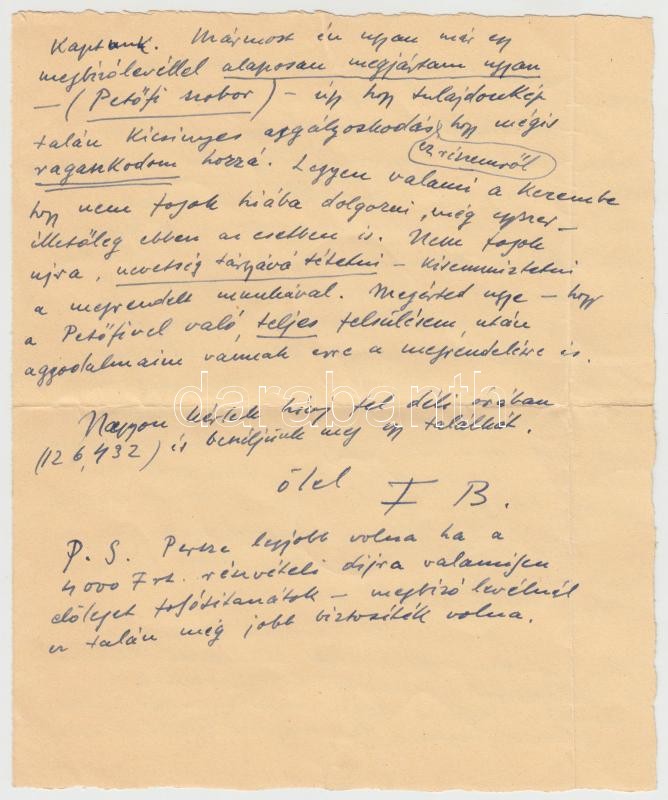 Kaptunk. Mármost én ugyan már egy
megbizólevéllel alaposan megjártam ugyan
— (Petőfi szobor) — úgy hogy tulajdonkép
talán Kicsinyes aggályoskodás hogy mégis
ez részemről
ragaszkodom hozzá. Legyen valami a Kezembe
hogy nem fogok hiába dolgozni, még egyszer —
illetőleg ebben az esetben is. Nem fogok
ujra, nevetség tárgyává tétetni — Kisemmiztetni
a megrendelt munkával. Megérted ugye — hogy
a Petőfivel való teljes felsülésem után
aggodalmaim vannak erre a megrendelésre is.
Nagyon kérlek hivj fel déli órában
(126,432) és beszéljünk meg egy találkát.
ölel F B.
P. S. Persze legjobb volna ha a
4000 Frt. részvételi díjra valamilyen
előleget folyósitanátok — megbizó levélnél
ez talán még jobb biztosíték volna.
darabanth